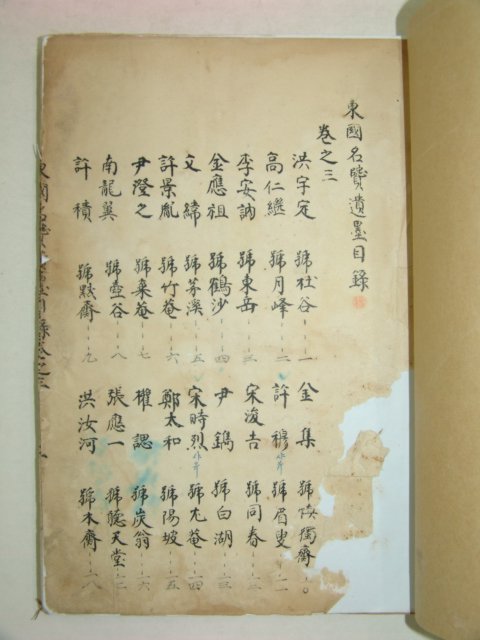 東國名賢遺墨目錄
卷之三
洪宇定 號杜谷 一 金集 號愼獨齋 一〇
高仁繼 號月峰 二 許穆 號眉叟 一一
李安訥 號東岳 三 宋浚吉 號同春 一二
金應祖 號鶴沙 四 尹鑴 號白湖 一三
文緯 號茅溪 五 宋時烈 號尤菴 一四
許景胤 號竹菴 六 鄭太和 號陽坡 一五
尹澄之 號栗菴 七 權諰 號炭翁 一六
南龍翼 號壺谷 八 張應一 號聽天堂 一七
許積 號默齋 九 洪汝河 號木齋 一八
東國名賢遺墨目錄卷之三